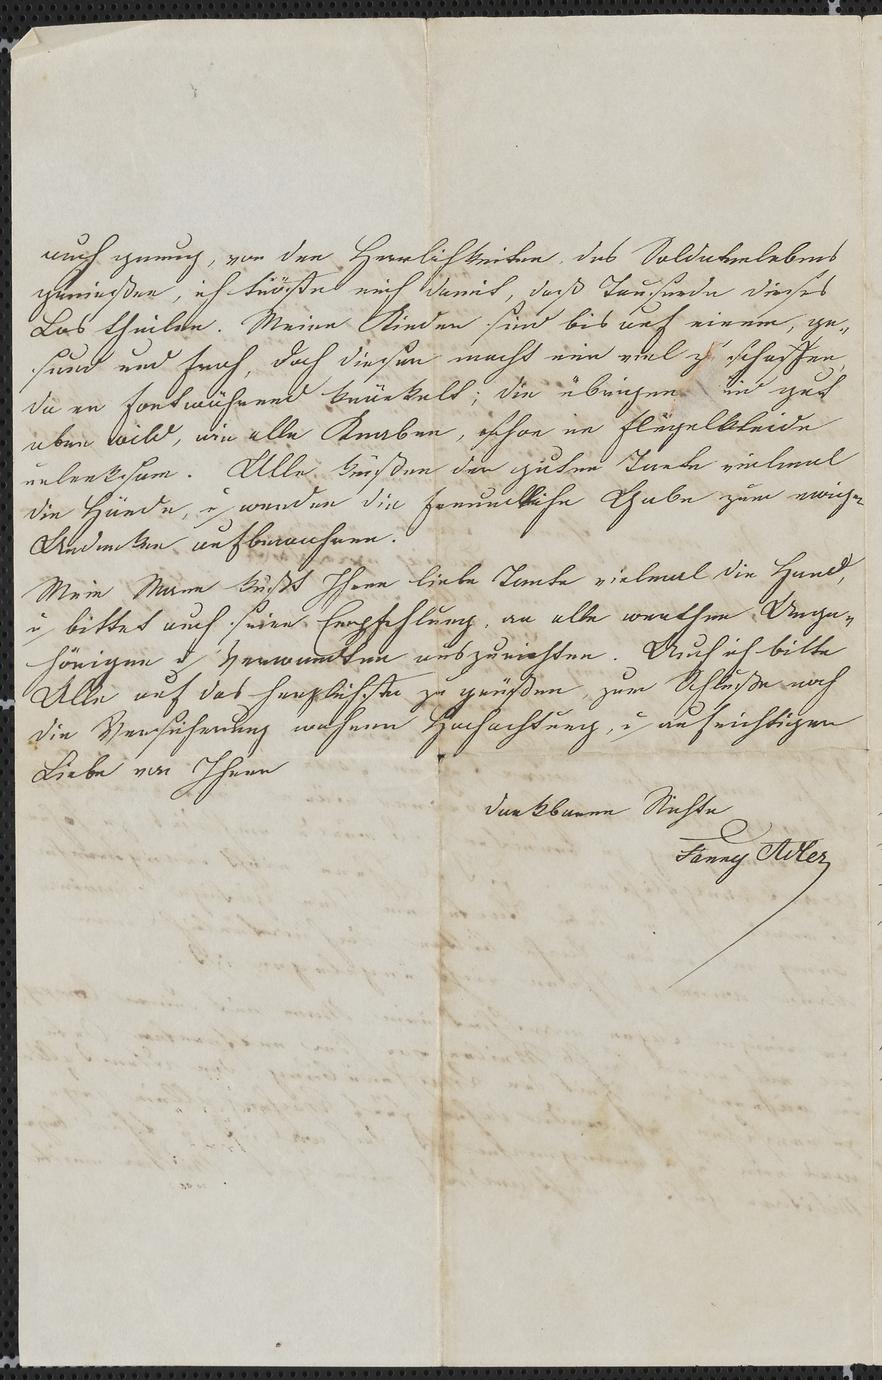 auch genug, von den Herrlichkeiten des Soldatenlebens
genießen, ich tröste mich damit, daß Tausende dieses
Los theilen. Meine Kinder sind bis auf einen, ge„
sund und froh, doch dieser macht mir viel zu schaffen,
da er fortwährend kränkelt; die übrigen sind gut
aber wild, wie alle Knaben, schon im Flügelkleide
unlenksam. Alle küßen der guten Tante vielmal
die Hände, u werden die freundliche Gabe zum ewigen
Andenken aufbewahren.
Mein Mann küßt Ihnen liebe Tante vielmal die Hand,
u bittet auch seine Empfehlung, an alle werthen Ange„
hörigen u Verwandten auszurichten. Auch ich bitte
Alle auf das herzlichste zu grüßen, zum Schluße noch
die Versicherung wahrer Hochachtung, u aufrichtigen
Liebe von Ihrer
dankbaren Nichte
Fanny Adler